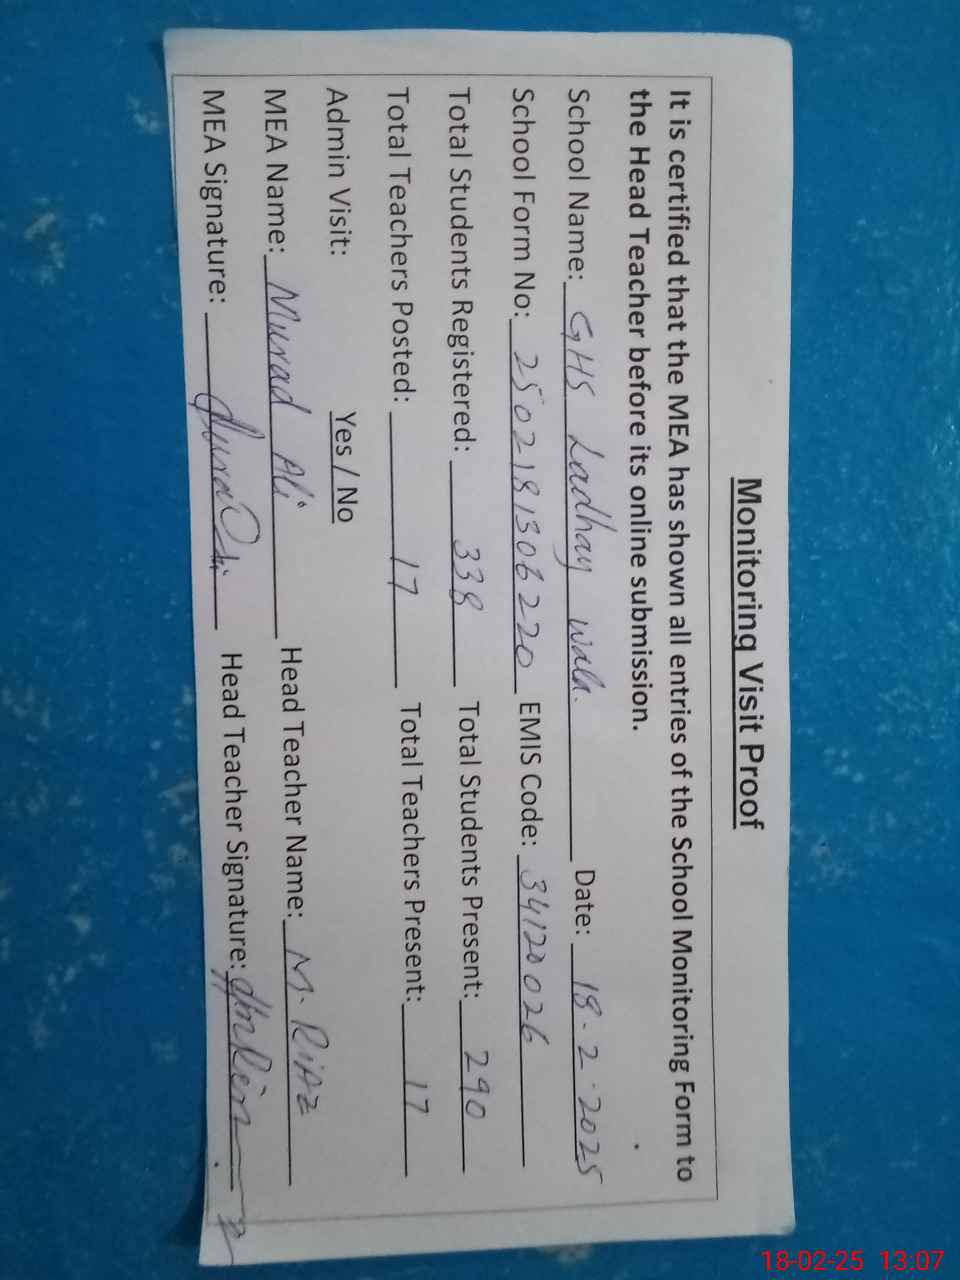 Monitoring Visit Proof
It is certified that the MEA has shown all entries of the School Monitoring Form to
the Head Teacher before its online submission.
School Name: GHS Ladhay wala. Date: 18-2-2025
School Form No: 2502181306220 EMIS Code: 34120026
Total Students Registered: 338 Total Students Present: 290
Total Teachers Posted: 17 Total Teachers Present: 17
Admin Visit: Yes / No
MEA Name: Murad Ali Head Teacher Name: M. RiAz
MEA Signature: Head Teacher Signature:
18-02-25 13:07